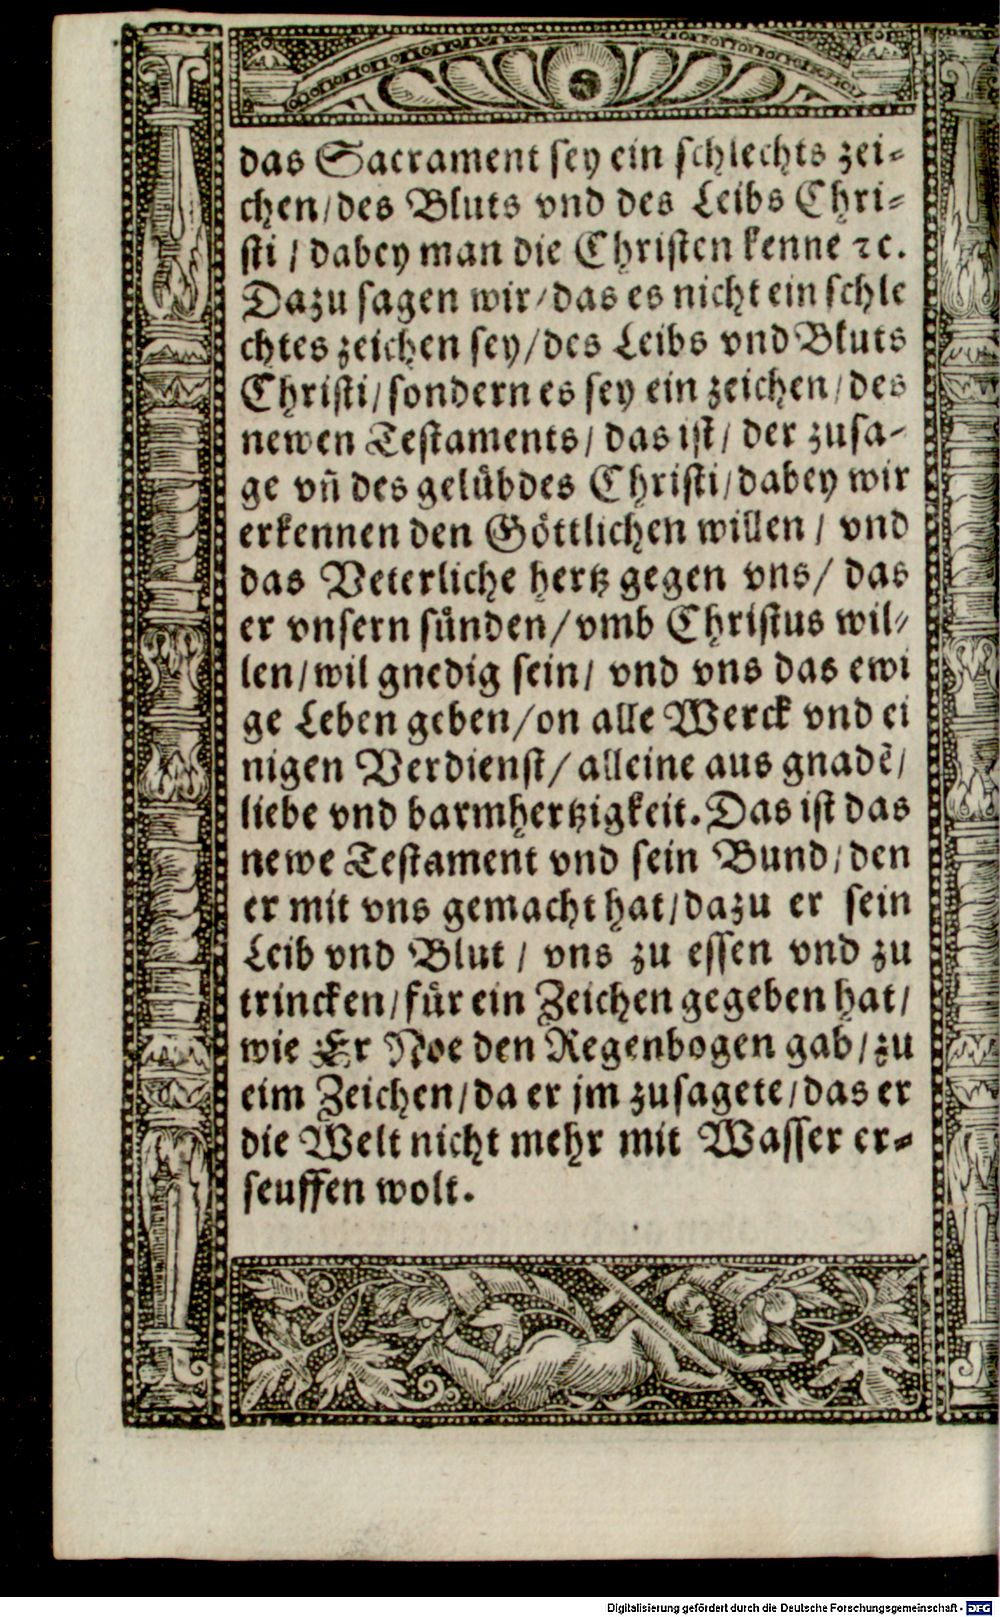 das Sacrament sey ein schlechts zei-
chen/des Bluts vnd des Leibs Chri-
sti / dabey man die Christen kenne ꝛc.
Dazu sagen wir/das es nicht ein schle
chtes zeichen sey/des Leibs vnd Bluts
Christi/sondern es sey ein zeichen/des
newen Testaments/das ist/ der zusa-
ge vn̄ des gelübdes Christi/dabey wir
erkennen den Göttlichen willen / vnd
das Veterliche hertz gegen vns/ das
er vnsern sünden/vmb Christus wil-
len/wil gnedig sein/ vnd vns das ewi
ge Leben geben/on alle Werck vnd ei
nigen Verdienst/alleine aus gnadē/
liebe vnd barmhertzigkeit. Das ist das
newe Testament vnd sein Bund/den
er mit vns gemacht hat/dazu er sein
Leib vnd Blut / vns zu essen vnd zu
trincken/für ein Zeichen gegeben hat/
wie Er Noe den Regenbogen gab/zu
eim Zeichen/da er jm zusagete/das er
die Welt nicht mehr mit Wasser er-
seuffen wolt.
Digitalisierung gefördert durch die Deutsche Forschungsgemeinschaft - DFG